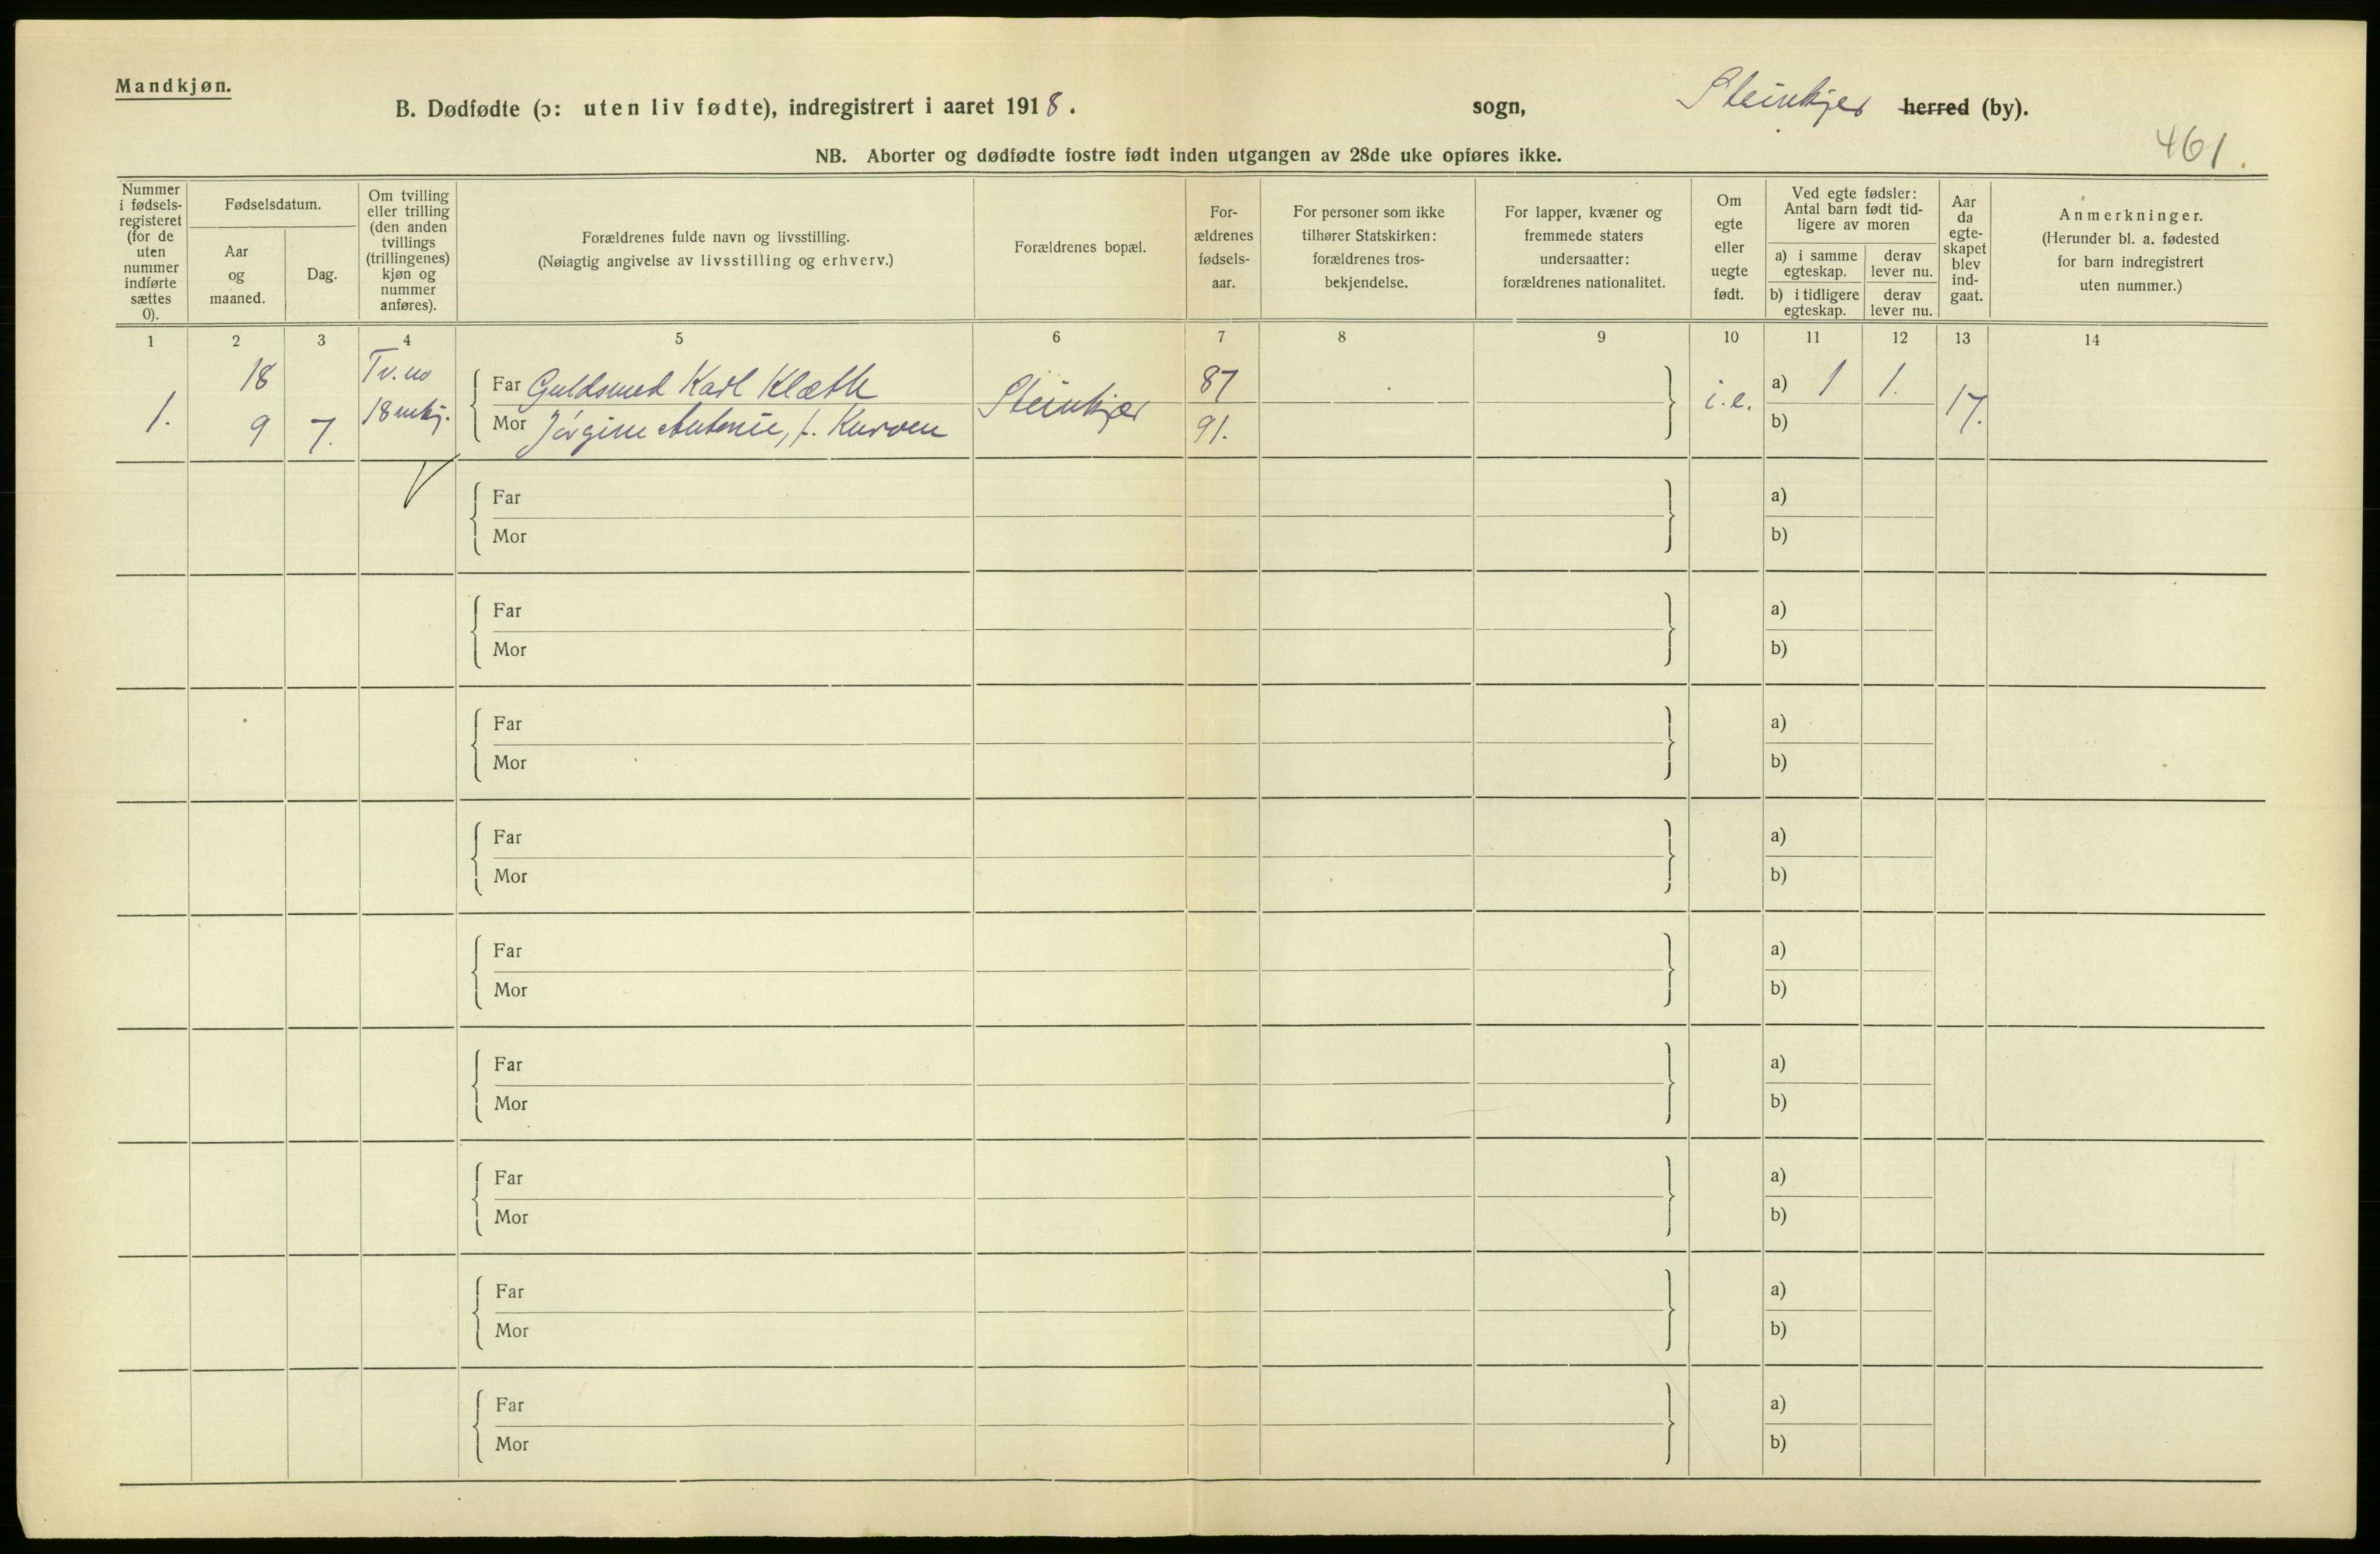 Mandkjøn.
B. Dødfødte (ɔ: uten liv fødte), indregistrert i aaret 1918. sogn, Steinkjer herred (by).
461.
NB. Aborter og dødfødte fostre født inden utgangen av 28de uke opføres ikke.
Nummer i fødsels-registeret (for de uten nummer indførte sættes 0).
Fødselsdatum.
Aar og maaned.
Dag.
Om tvilling eller trilling (den anden tvillings (trillingenes) kjøn og nummer anføres).
Forældrenes fulde navn og livsstilling.
(Nøiagtig angivelse av livsstilling og erhverv.)
Forældrenes bopæl.
For-ældrenes fødsels-aar.
For personer som ikke tilhører Statskirken: forældrenes tros-bekjendelse.
For lapper, kvæner og fremmede staters undersaatter: forældrenes nationalitet.
Om egte eller uegte født.
Ved egte fødsler: Antal barn født tid-ligere av moren
a) i samme egteskap.
derav lever nu.
b) i tidligere egteskap.
derav lever nu.
Aar da egte-skapet blev ind-gaat.
Anmerkninger.
(Herunder bl. a. fødested for barn indregistrert uten nummer.)
1 2 3 4 5 6 7 8 9 10 11 12 13 14
18 Tv. no Far Guldsmed Karl Klæth Steinkjer 87 i.e. a) 1 1. 17.
1. 9 7. 18 mkj. Mor Jørgine Antonie, f. Kurven 91. b)
Far a)
Mor b)
Far a)
Mor b)
Far a)
Mor b)
Far a)
Mor b)
Far a)
Mor b)
Far a)
Mor b)
Far a)
Mor b)
Far a)
Mor b)
Far a)
Mor b)